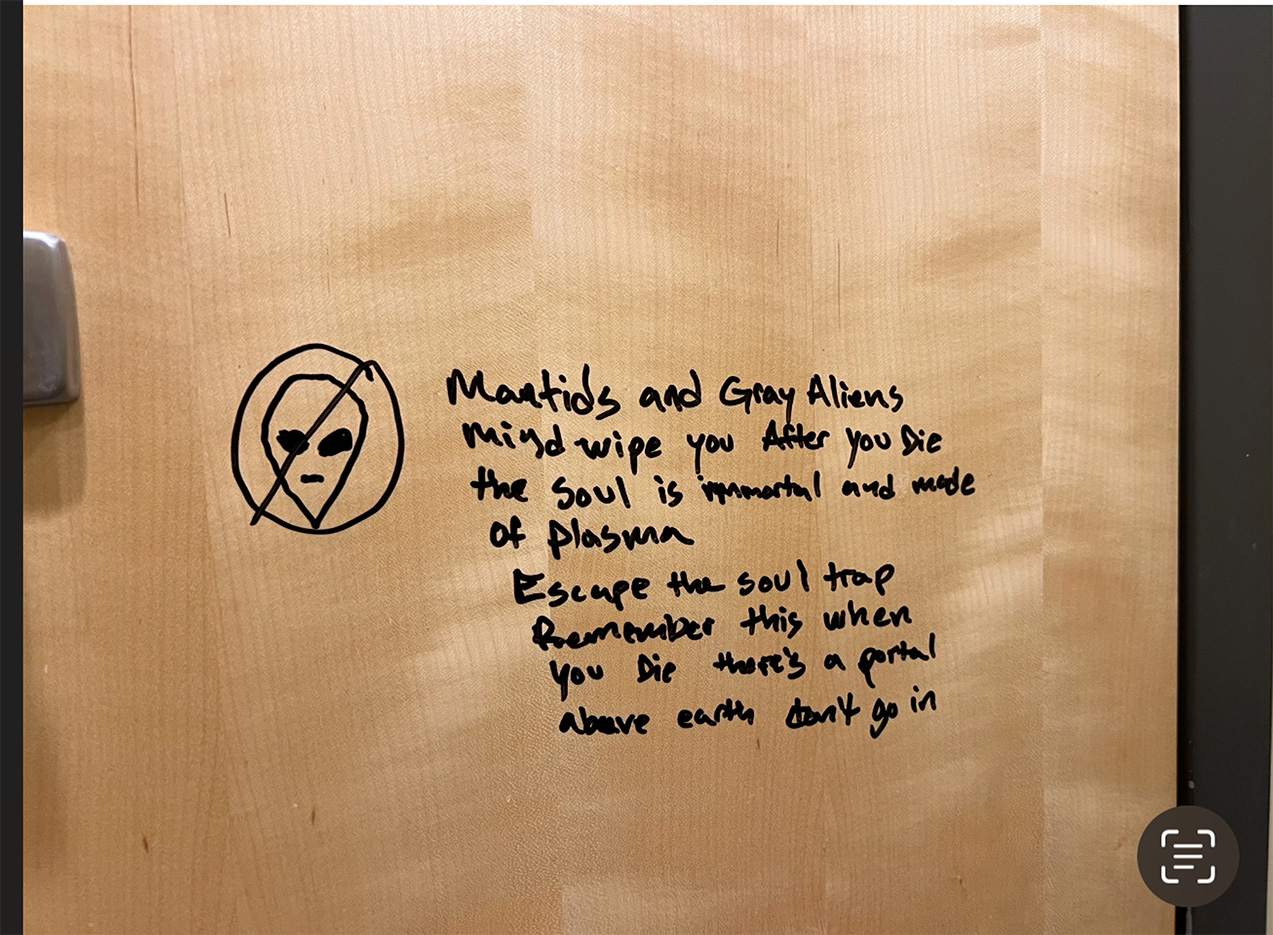 Mantids and Gray Aliens
Mind wipe you After you Die
the soul is immortal and made
of plasma
Escape the soul trap
Remember this when
you Die there's a portal
above earth don't go in